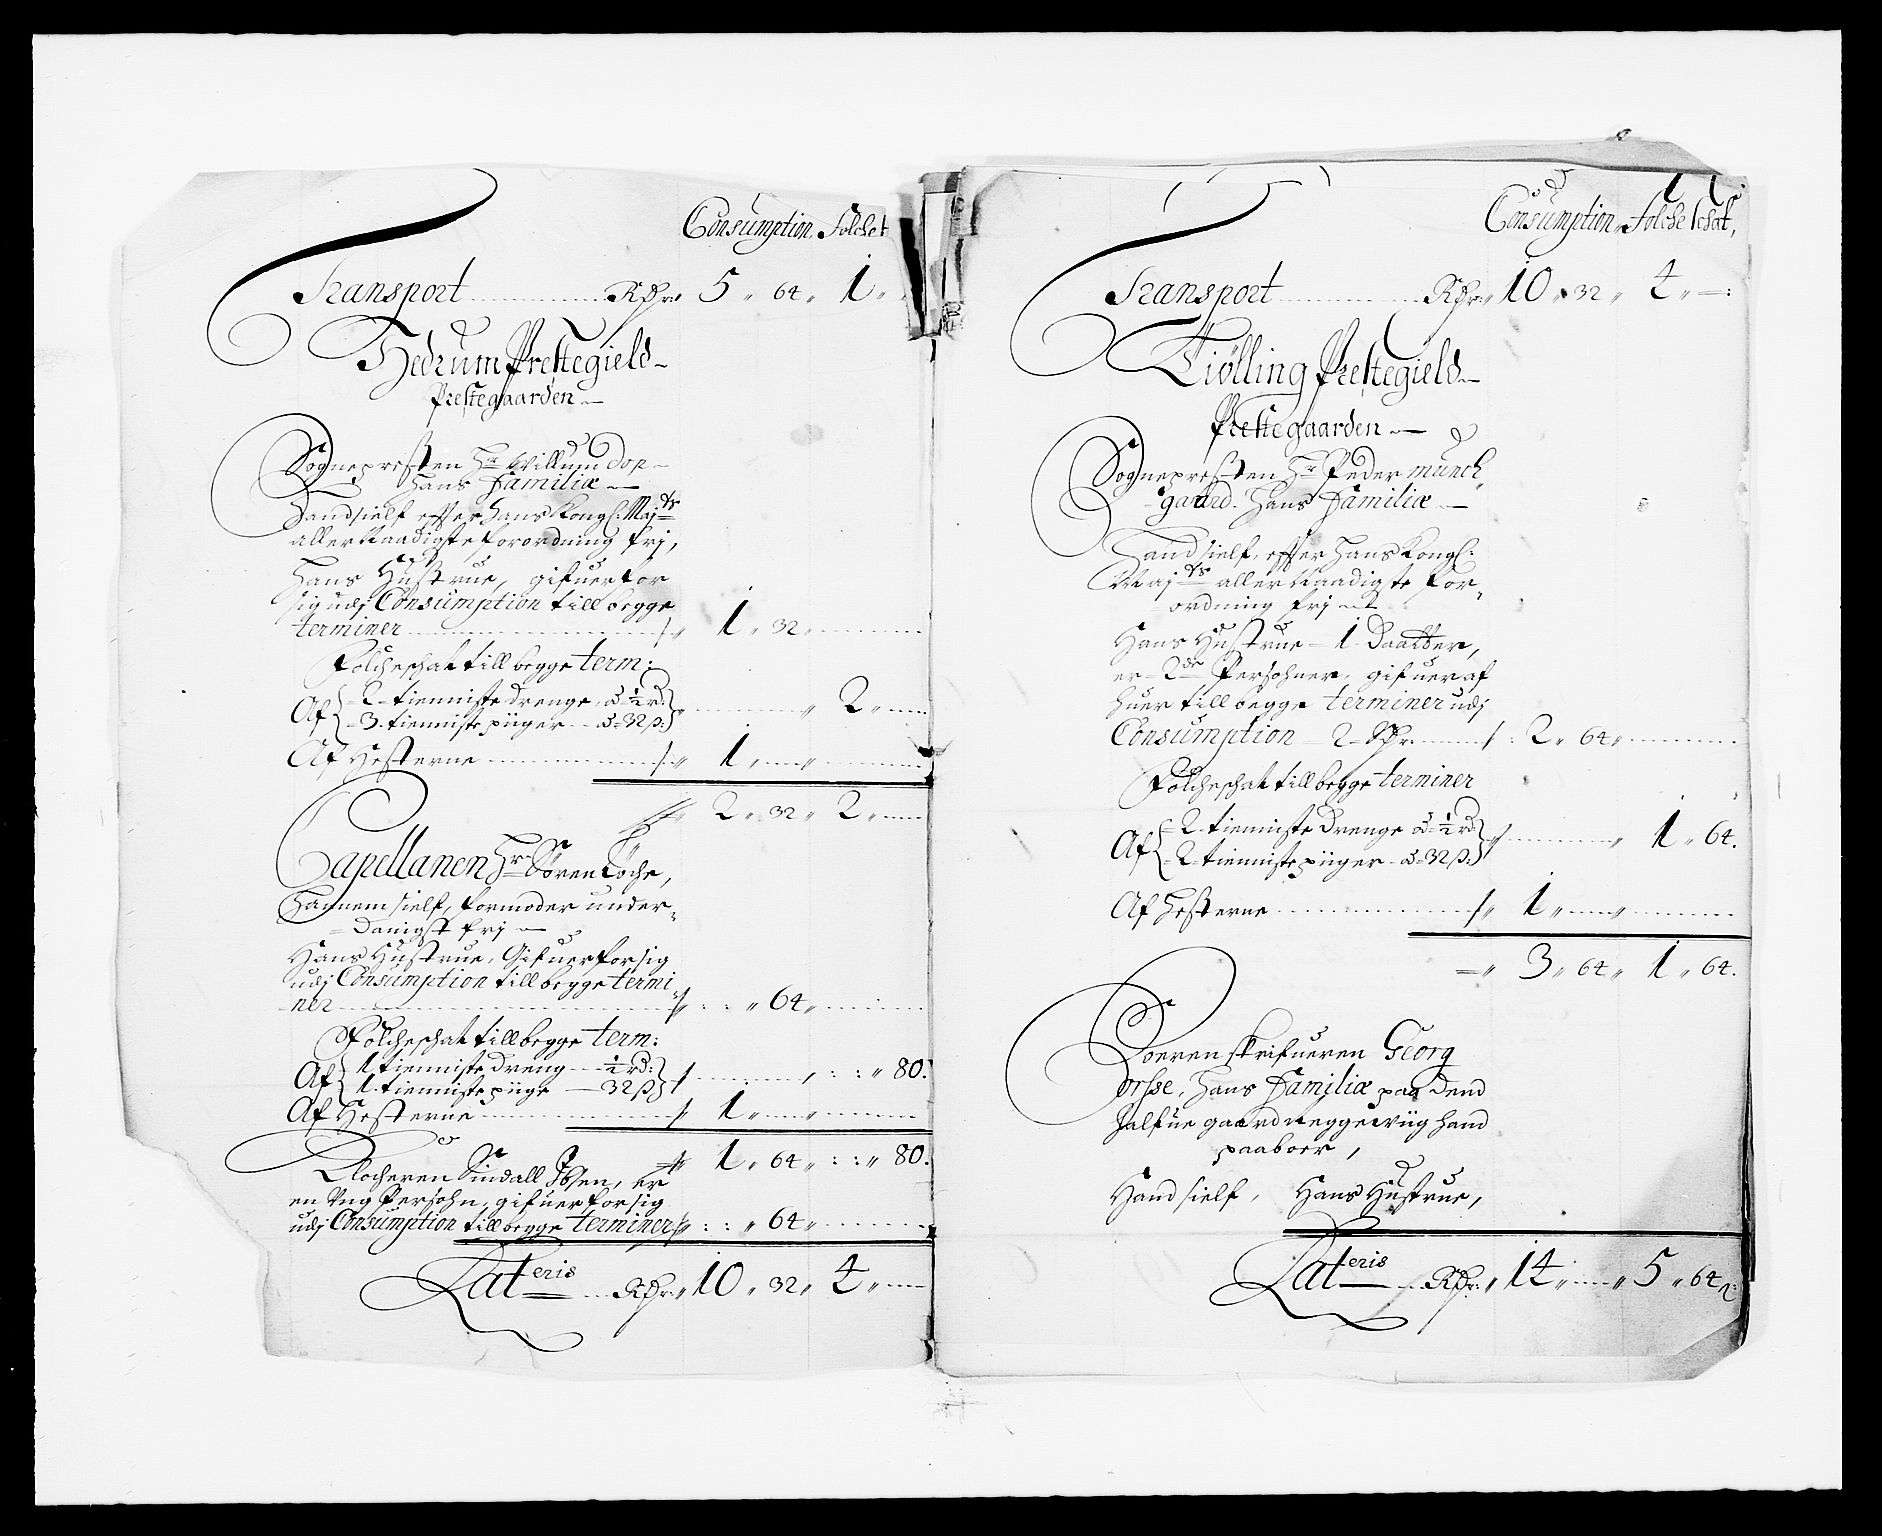 Consumption. Folche
Transport Rdr: 5 " 64 " 1 "
Hedrum Prestegield
Prestegaarden
Sognepresten Hr Willum Dop
Hans Familiæ
Hand sielf effter hans Kongl: Majts
allernaadigste forordning frj,
Hans Hustrue, gifuer for
sig udj Consumption till begge
terminer 1 " 32 "
Folcheschat till begge term:
Af { 2 tienniste drenge, a ½ rd: " 2 "
3 tienniste piiger a 32 s:
Af Hesterne 1 "
2 " 32 " 2 "
Capellanen Hr Søren Løche,
Hannem sielf, formoder under-
danigst frj
Hans Hustrue, Gifuer for sig
udj Consumption till begge termi
ner : " 64 "
Folcheschat till begge term:
Af { 1 tienniste dreng ½ rd: : : " 80.
1 tienniste piige 32 s
Af Hesterne 1 "
1 " 64 " : : " 80.
Klocheren Sindall Ibsen, er
en Ung Persohn, gifuer for sig
udj Consumption till begge terminer : : " 64 "
Lateris Rdr: 10 " 32 " 4 "
Consumption. Folche schat,
Transport Rdr: 10 " 32 " 4 " :
Tiølling Prestegield
Prestegaarden
Sognepresten Hr Peder Munch
gaard. Hans Familiæ
Hand sielf, effter Hans Kongl:
Majts allernaadigste for-
ordning frj
Hans Hustrue 1 Daatter,
er 2de Persohner, gifuer af
huer till begge terminer udj
Consumption 2 Rdr. : 2 " 64 "
Folcheschat till begge terminer
Af { 2 tienniste drenge a ½ rd: " 1 " 64.
2 tienniste piiger a 32 s:
Af Hesterne 1 "
3 " 64 " 1 " 64.
Soerenskrifueren Georg
orsse, Hans Familiæ paa dend
halfue gaard hand
paaboer,
Hand sielf, Hans Hustrue,
Lateris Rdr: 14 " 5 " 64